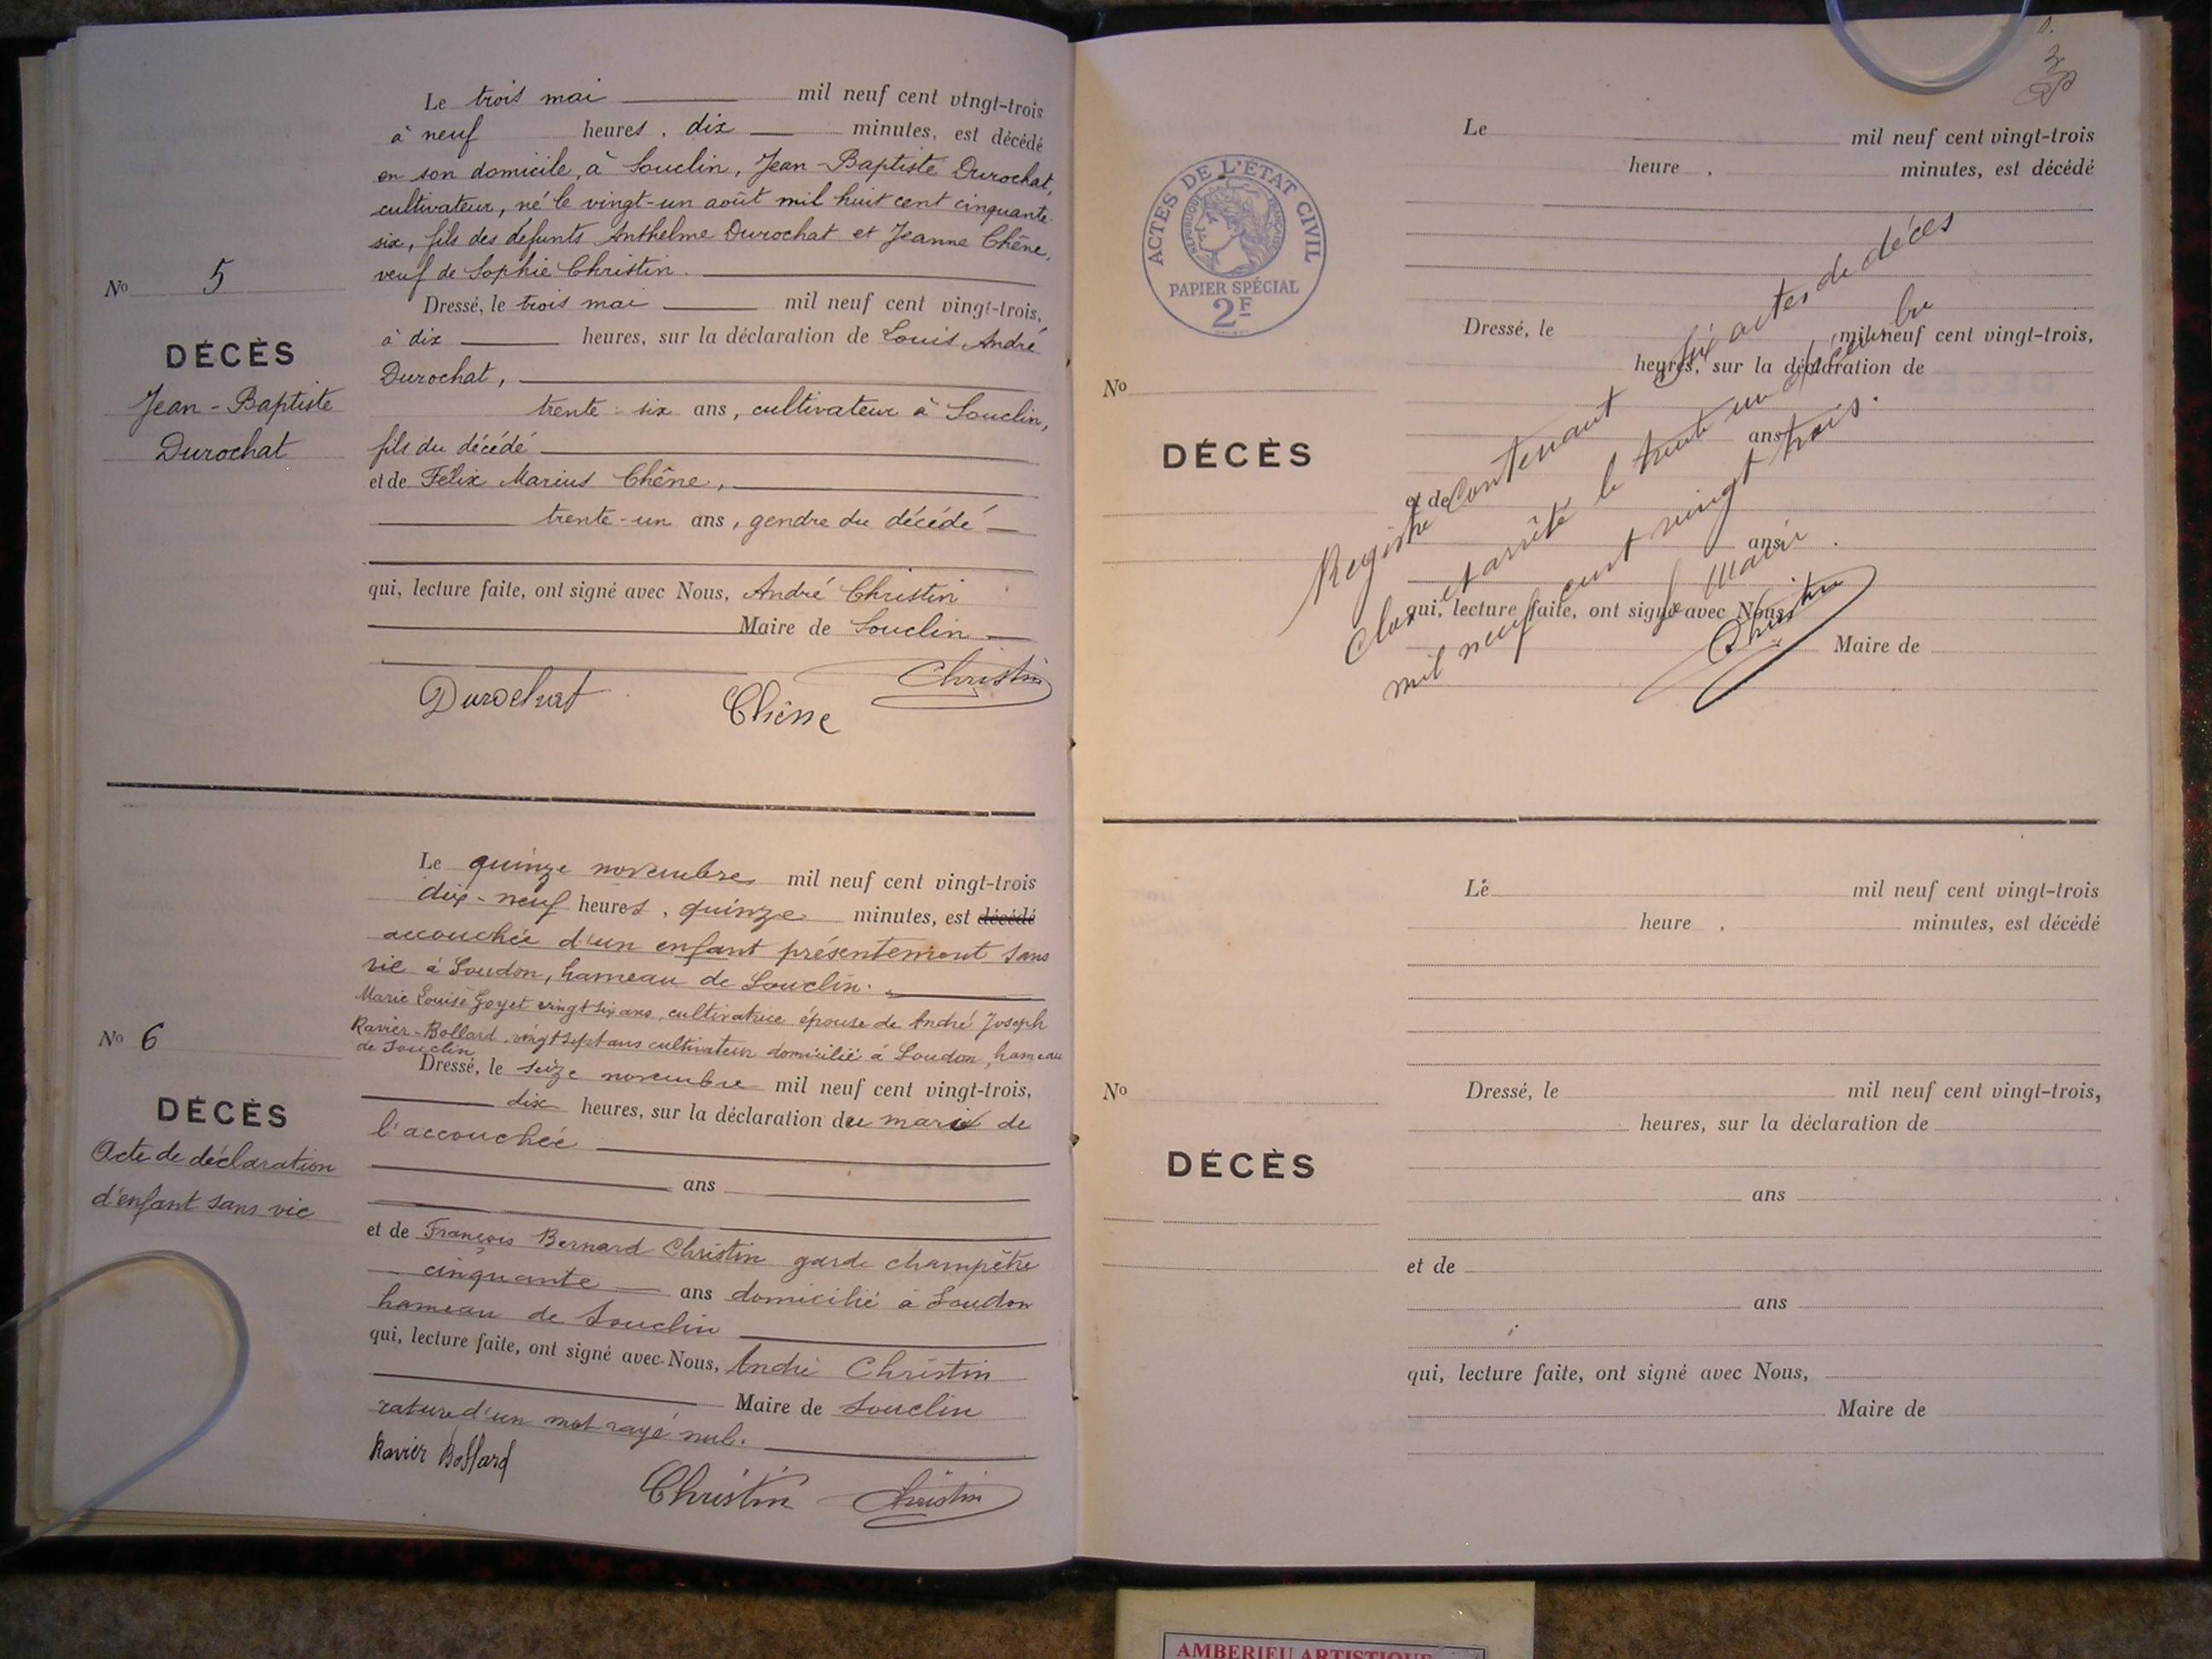 Le trois mai mil neuf cent vingt-trois
à neuf heures, dix minutes, est décédé
en son domicile, à Souclin, Jean-Baptiste Durochat,
cultivateur, né le vingt-un août mil huit cent cinquante-
six, fils des défunts Anthelme Durochat et Jeanne Chêne,
veuf de Sophie Christin.
No 5
DÉCÈS
Jean-Baptiste
Durochat
Dressé, le trois mai mil neuf cent vingt-trois,
à dix heures, sur la déclaration de Louis André
Durochat,
trente-six ans, cultivateur à Souclin,
fils du décédé
et de Félix Marius Chêne,
trente-un ans, gendre du décédé
qui, lecture faite, ont signé avec Nous, André Christin
Maire de Souclin
Durochat Chêne Christin
Le quinze novembre mil neuf cent vingt-trois
dix-neuf heures, quinze minutes, est décédé
accouchée d'un enfant présentement sans
vie à Soudon, hameau de Souclin.
Marie Louise Goyet vingt six ans, cultivatrice épouse de André Joseph
Ravier-Bollard, vingt sept ans cultivateur domicilié à Soudon, hameau
de Souclin
No 6
DÉCÈS
Acte de déclaration
d'enfant sans vie
Dressé, le seize novembre mil neuf cent vingt-trois,
dix heures, sur la déclaration du mari de
l'accouchée
ans
et de François Bernard Christin garde champêtre
cinquante ans domicilié à Soudon
hameau de Souclin
qui, lecture faite, ont signé avec Nous, André Christin
Maire de Souclin
rature d'un mot rayé nul.
Ravier Bollard Christin Christin
ACTES DE L'ÉTAT CIVIL
RÉPUBLIQUE FRANÇAISE
PAPIER SPÉCIAL
2F
Le mil neuf cent vingt-trois
heure , minutes, est décédé
No
DÉCÈS
Dressé, le mil neuf cent vingt-trois,
heures, sur la déclaration de
ans
et de
ans
qui, lecture faite, ont signé avec Nous,
Maire de
Registre contenant six actes de décès
clos et arrêté le trente un décembre
mil neuf cent vingt trois.
le Maire
Christin
Le mil neuf cent vingt-trois
heure , minutes, est décédé
No
DÉCÈS
Dressé, le mil neuf cent vingt-trois,
heures, sur la déclaration de
ans
et de
ans
qui, lecture faite, ont signé avec Nous,
Maire de
AMBERIEU ARTISTIQUE